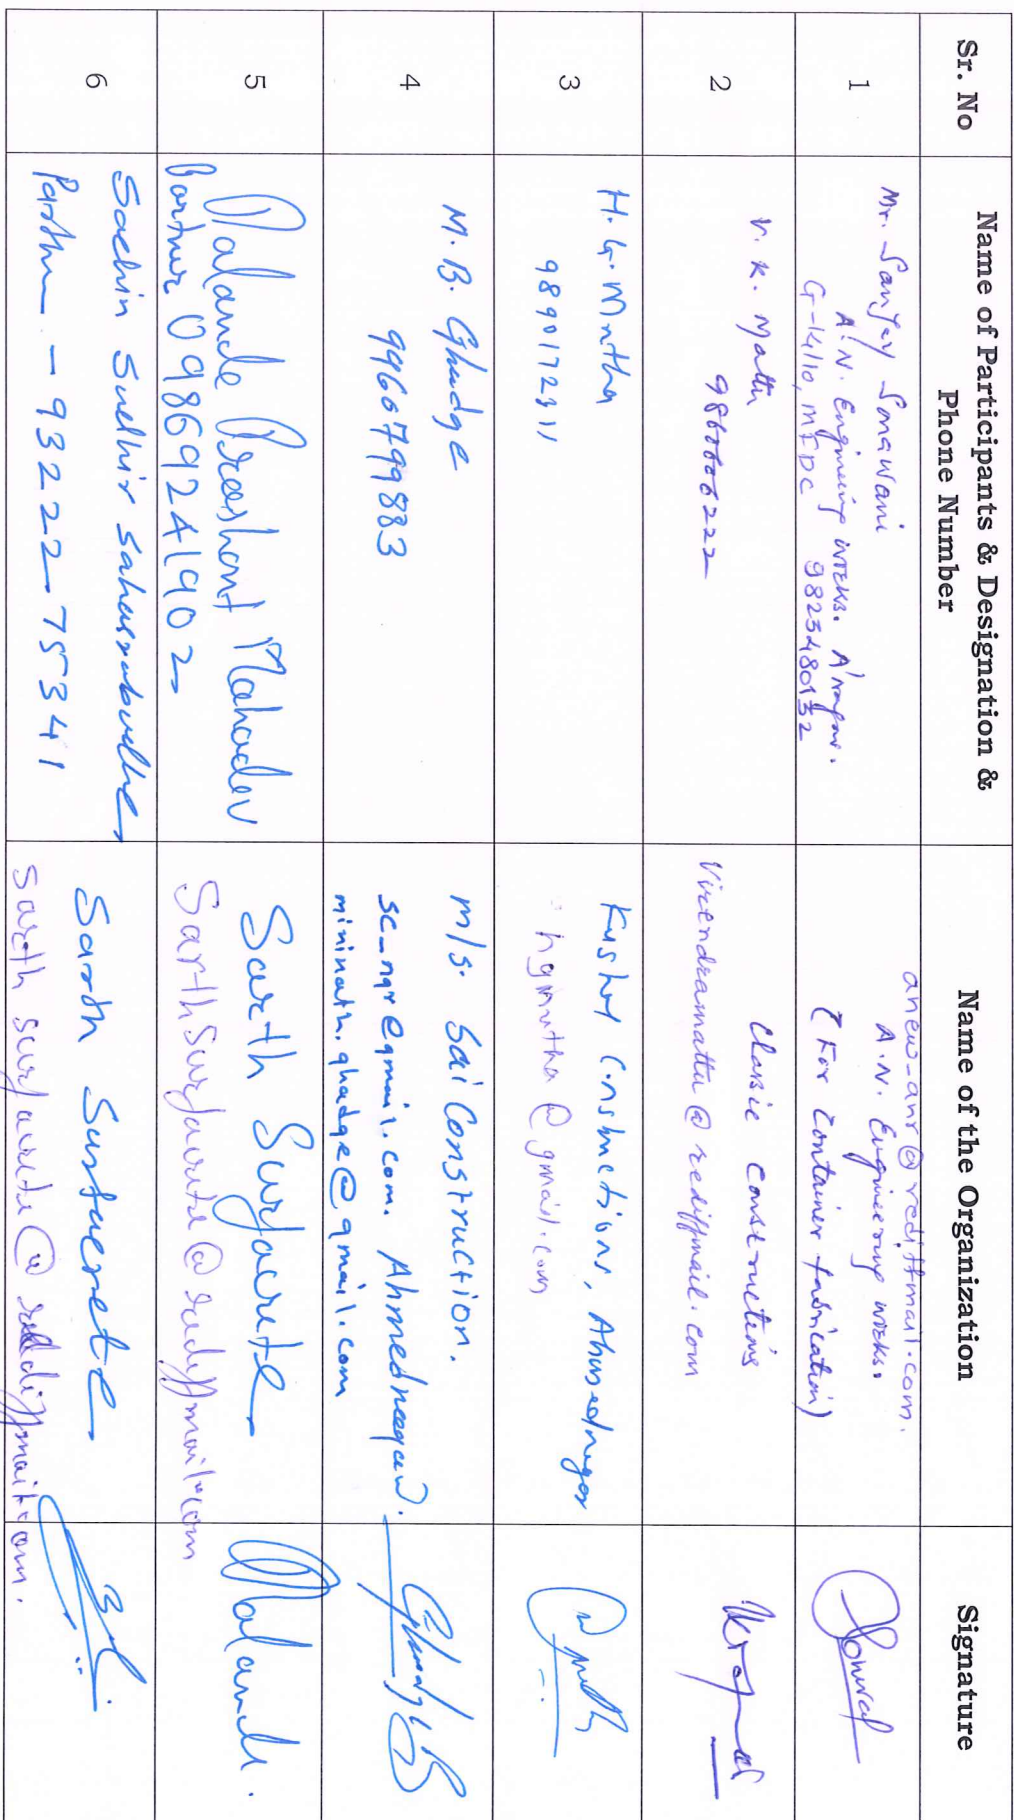 Sr. No
Name of Participants & Designation &
Phone Number
Name of the Organization
Signature
1
Mr. Sanjay Sonawani
A.N. Engineering works. A'nagar.
G-14/10, MIDC 9823480132
anew_anr@rediffmail.com.
A.N. Engineering works.
(For Container fabrication)
2
V. K. Mattu
Classic Constructions
virendramattu@rediffmail.com
3
H. G. Mutha
9890172311
Kushal Constructions, Ahmednagar
hgmutha@gmail.com
4
M. B. Ghadge
9966799883
M/s. Sai Construction.
sc_ngr@gmail.com. Ahmednagar.
mininath.ghadge@gmail.com
5
Malande Prashant Mahadev
Partner 09869241902
Sarth Surfacrete
Sarthsurfacrete@rediffmail.com
Malande.
6
Sachin Sudhir Sahasrabudhe
Partner - 93222-75341
Sarth Surfacrete
sarth surfacrete@rediffmail.com.